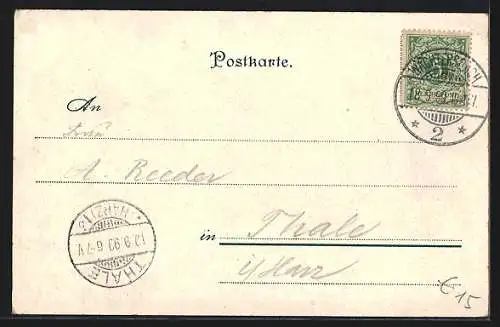 Postkarte.
An
Frau
A. Reeder
in Thale
i/Harz
THALE
(HARZ) 1 b
12.9.99 6-7 V
* 2 *
€ 15